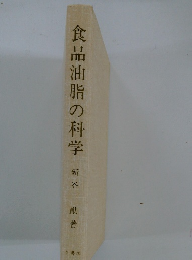 食品油脂の科学
新谷
著